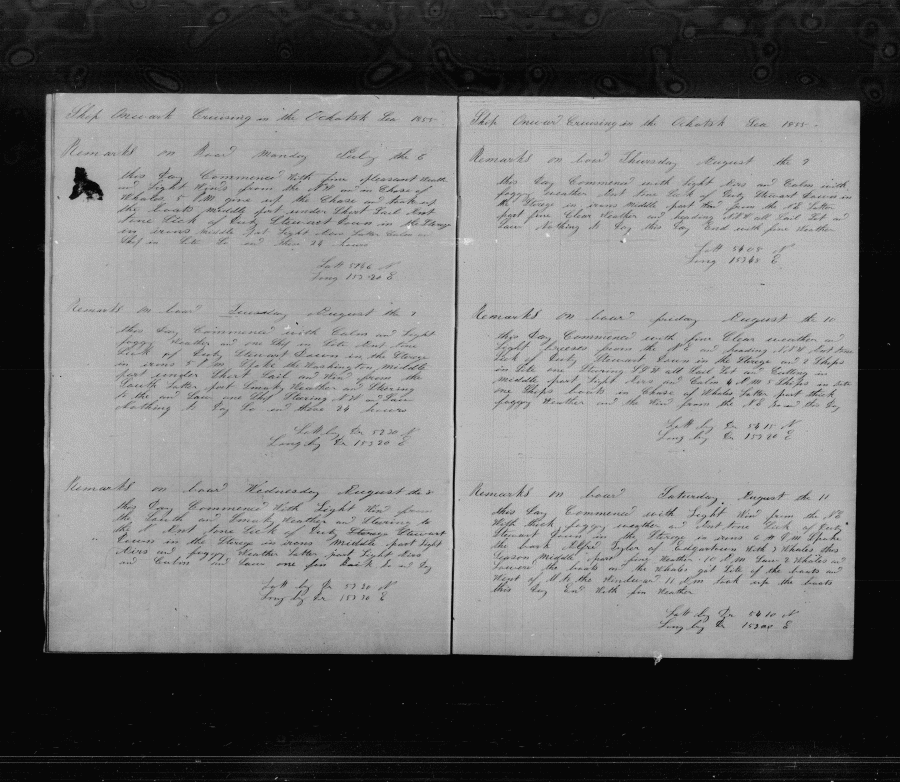 Ship Onward Cruising in the Ochotsk Sea 1855
Remarks on Board Monday the 6
this Day Commenced With fine pleasant Weather
and Light Winds from the N W and in Chase of
Whales 5 P M gave up the Chase and took up
the boats Middle part under Short Sail
Sick of Duty Stewart Down in the Sterage
in irons Middle part Light Airs Latter Calm
Ship in Site So End these 24 hours
Latt 5426 N
Long 153 20 E
Remarks on board Tuesday August the 7
this Day Commenced with Calm and Light
foggy Weather and one Ship in Site
Sick of Duty Stewart Down in the Sterage
in irons 5 P M Spoke the Washington Middle
part under Short Sail and Wind from the
South Latter part Smoky Weather and Stering
to the and Saw one Ship Stering N W and Saw
Nothing So End these 24 hours
Latt by Dr 5330 N
Long by Dr 153 20 E
Remarks on board Wednesday August the 8
this Day Commenced With Light Wind from
the South and Smoky Weather and Stering to
the Sick of Duty Stewart
Down in the Sterage in irons Middle part Light
Airs and foggy Weather Latter part Light Airs
and Calm and Saw one fin back So End Day
Latt by Dr 5330 N
Long by Dr 153 30 E
Ship Onward Cruising in the Ochotsk Sea 1855
Remarks on board Thursday August the 9
this Day Commenced with Light Airs and Calm with
foggy weather Sick of Duty Stewart Down in
the Sterage in irons Middle part Wind from the N E Latter
part fine Clear Weather and heading N N E all Sail Set and
Saw Nothing this Day End with fine Weather
Latt 5408 N
Long 153 48 E
Remarks on board friday August the 10
this Day Commenced with fine Clear weather and
Light Breeses from the N E and heading N N W
Sick of Duty Stewart Down in the Sterage and 2 Ships
in Site one Stering S S W all Sail Set and Cutting in
Middle part Light Airs and Calm 4 A M 7 Ships in Site
one Ships boats in Chase of Whales Latter part thick
foggy Weather and the Wind from the N E So End this Day
Latt by Dr 5415 N
Long by Dr 153 20 E
Remarks on board Saturday August the 11
this Day Commenced with Light Wind from the N E
With thick foggy weather Sick of Duty
Stewart Down in the Sterage in irons 6 P M Spoke
the bark Alfred Tyler of Edgartown With 3 Whales this
Season Middle part foggy Weather 10 A M Saw 2 Whales and
Lowered the boats and the Whales got Site of the boats and
Went of to the Windward 11 A M took up the boats
this Day End With fin Weather
Latt by Dr 5410 N
Long by Dr 153 08 E